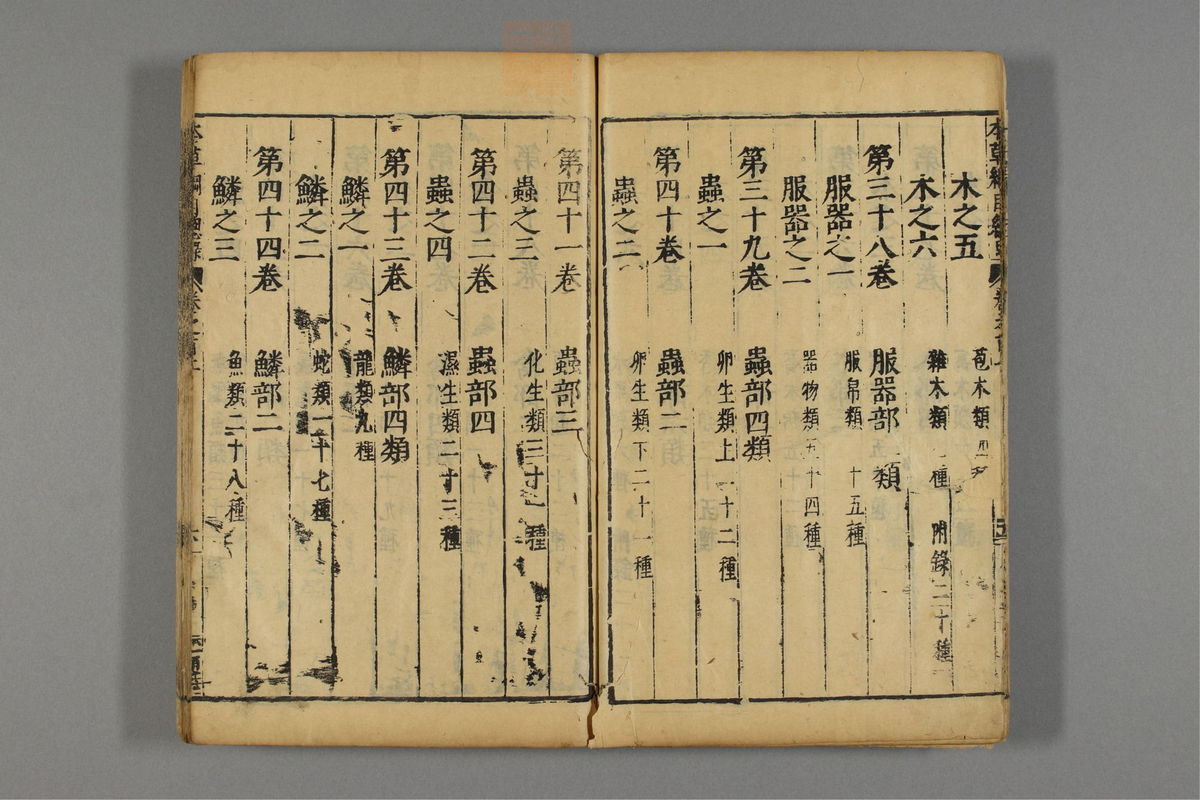 木之五 苞木類四種
木之六 雜木類 種 附錄二十種
第三十八卷 服器部 類
服器之一 服帛類 十五種
服器之二 器物類五十四種
第三十九卷 蟲部四類
蟲之一 卵生類上二十二種
第四十卷 蟲部二
蟲之二 卵生類下二十一種
第四十一卷 蟲部三
蟲之三 化生類三十一種
第四十二卷 蟲部四
蟲之四 濕生類二十三種
第四十三卷 鱗部四類
鱗之一 龍類九種
鱗之二 蛇類一十七種
第四十四卷 鱗部二
鱗之三 魚類二十八種